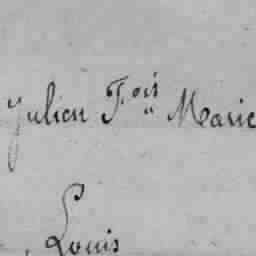 Julien Fois Marie
Louis